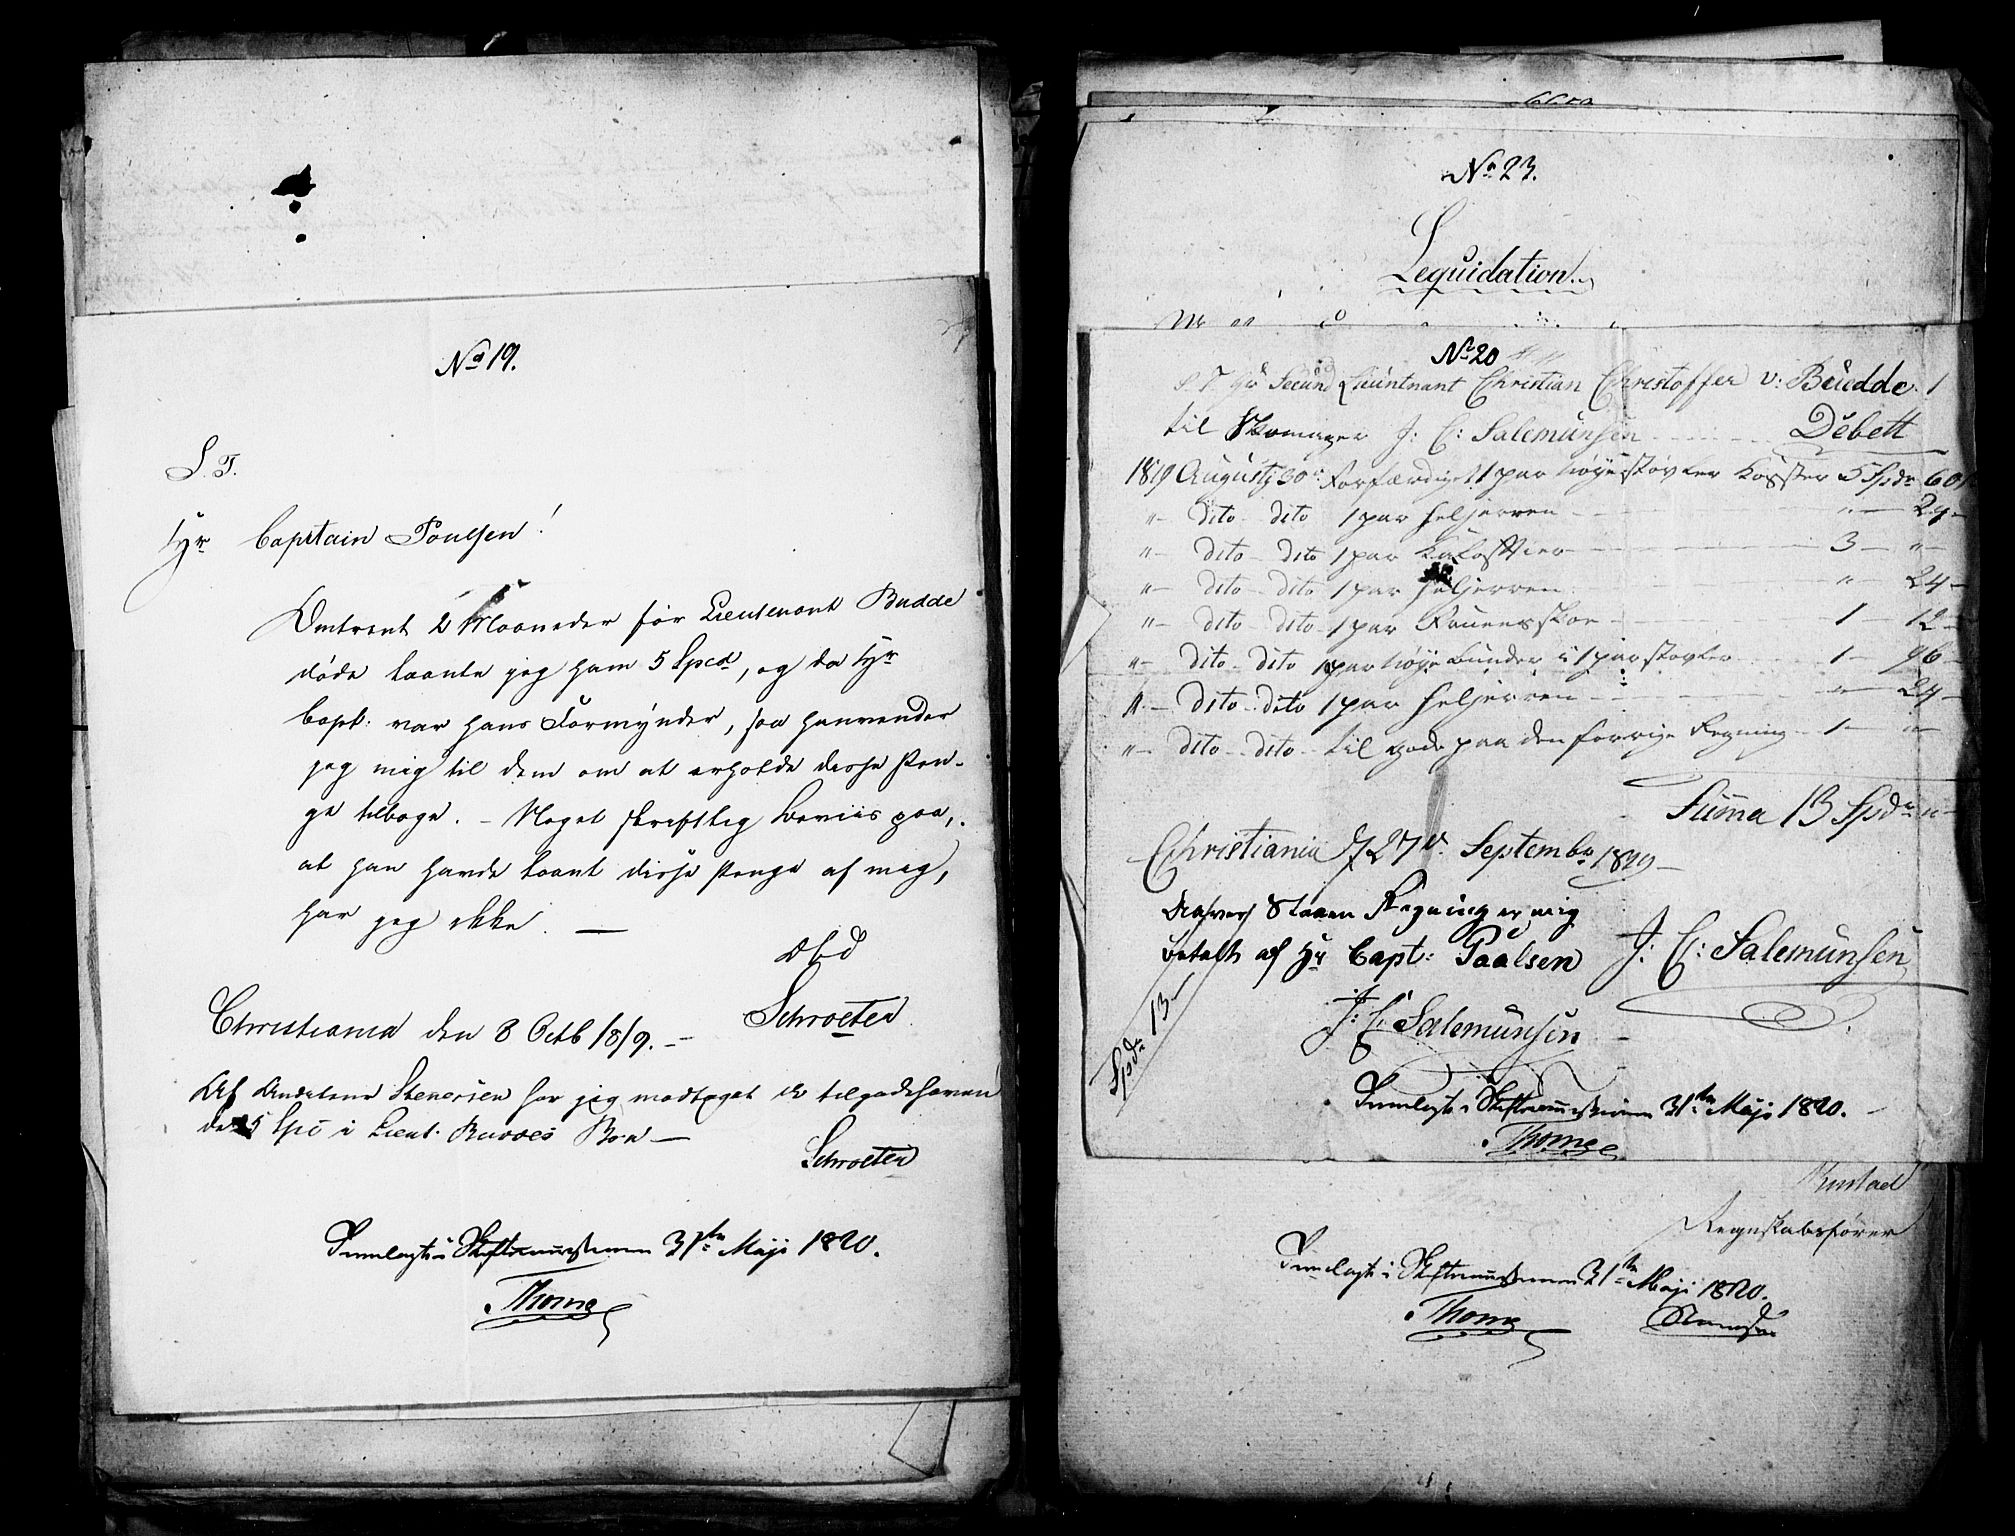 No 19.
S. T.
Hr Captain Poulsen!
Omtrent 2 Maaneder før Lieutenant Budde
døde laante jeg ham 5 Spcd, og da Hr
Capt: var hans Formynder, saa henvender
jeg mig til dem om at erholde disse Pen-
ge tilbage. - Noget skriftlig Beviis paa,
at han havde laant disse Penge af mig,
har jeg ikke. —
Schroeter
Christiania den 8 Octb 1819. -
Af Stenersen har jeg modtaget
5 Spc i Lieut. Buddes Boe —
Schroeter
Fremlagt i Skiftesamlingen 31te Maji 1820.
Thorne
No 23.
Liquidation.
No 20
S. T. Hr Second Lieutnant Christian Christoffer v: Budde. 1
til Skomager J: C: Salemunsen Debett
1819 Augustj 30 Forfærdiget 1 par høye støvler Koster 5 Spdr 60
" - dito - dito 1 par heljerren " - 24 -
" - dito - dito 1 par 3 - " -
" - dito - dito 1 par heljerren " 24 -
" - dito - dito - 1 par Fruens skoe - 1 - 12 -
" - dito - dito 1 par høye bunder i 1 par støvler 1 - 96 -
" - dito - dito 1 par heljerren " - 24 -
" - dito - dito - til gode paa den forrige Regning - 1 - " -
Summa 13 Spdr " -
Christiania d 27de Septembr 1819 -
Regning er mig
betalt af Hr Capt: Paalsen
J: C: Salemunsen
J: C: Salemunsen
Spdr 13 -
Fremlagt i Skiftesamlingen 31te Maji 1820.
Thorne
Rustad
Regnskabsfører
Fremlagt i Skiftesamlingen 31te Maji 1820.
Thorne